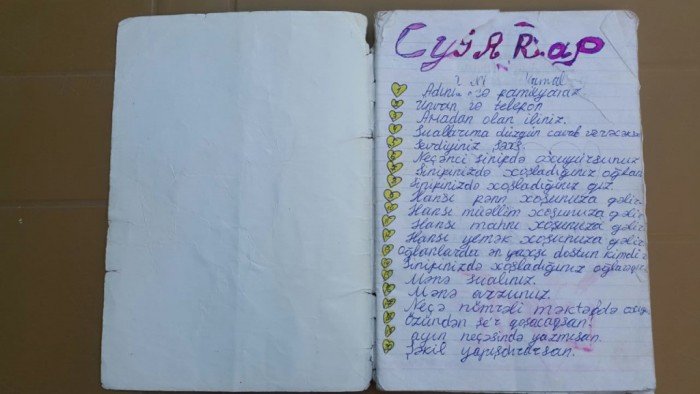 Суаллар
Adınız və familyanız.
Unvan və telefon
Anadan olan iliniz.
Suallarıma düzgün cavab verəcəksən
Sevdiyiniz şəxs.
Neçənci sinifdə oxuyursunuz
Sinifinizdə xoşladığınız oğlan
Sinifinizdə xoşladığınız qız.
Hansı fənn xoşunuza gəlir
Hansı müəllim xoşunuza gəlir
Hansı mahnı xoşunuza gəlir
Hansı yemək xoşunuza gəlir
Oğlanlarda ən yaxşı dostun kimdir
Sinifinizdə xoşladığınız
Mənə sualınız.
Mənə arzunuz.
Neçə nömrəli məktəbdə
Özündən şe'r qoşacaqsan.
ayın neçəsində yazmısan.
Şəkil yapışdırarsan.